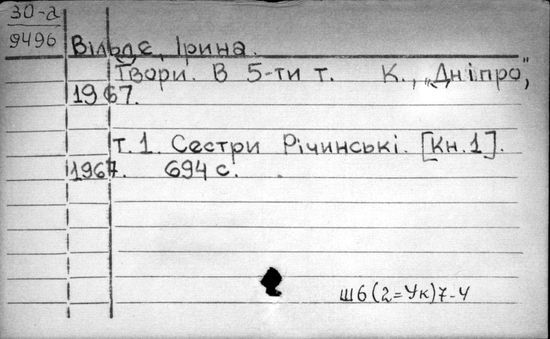 30-а
9496
Вільде, Ірина.
Твори. В 5-ти т. К., „Дніпро",
1967.
т. 1. Сестри Річинські. [Кн. 1].
1967. 694 с.
Ш6(2=Ук)7-4